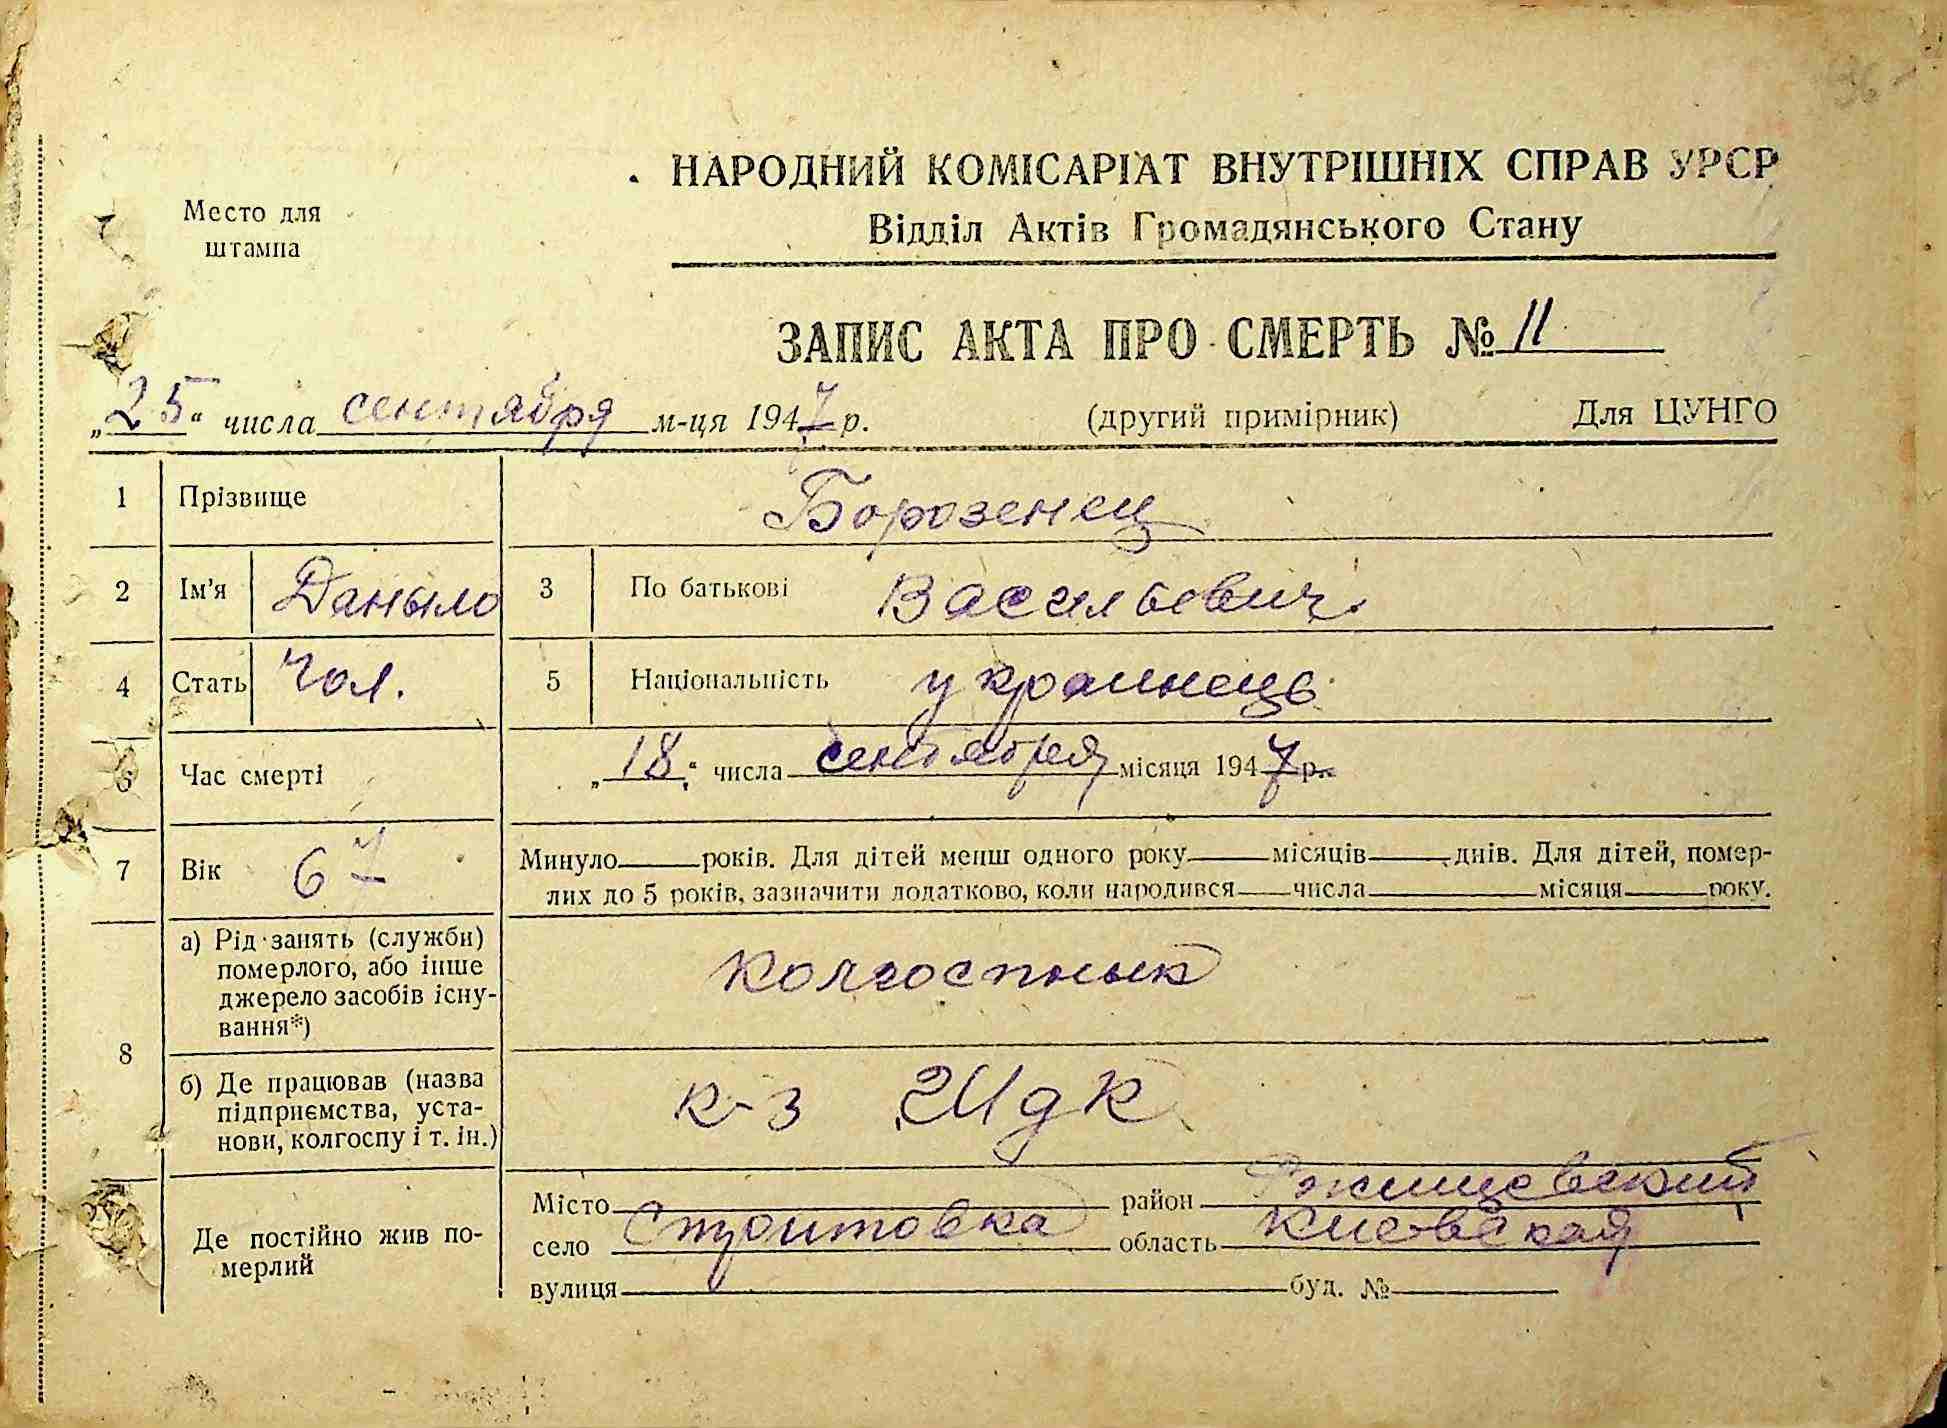 НАРОДНИЙ КОМІСАРІАТ ВНУТРІШНІХ СПРАВ УРСР
Відділ Актів Громадянського Стану
Место для
штампа
ЗАПИС АКТА ПРО СМЕРТЬ № 11
„25“ числа сентября м-ця 1947 р.
(другий примірник) Для ЦУНГО
1 Прізвище Борозенец
2 Ім'я Даныло 3 По батькові Васильевич
4 Стать Чол. 5 Національність украинець
6 Час смерті „18“ числа сентября місяця 1947 р.
7 Вік 67 Минуло____років. Для дітей менш одного року____місяців____днів. Для дітей, помер-
лих до 5 років, зазначити додатково, коли народився____числа____місяця____року.
8
а) Рід занять (служби)
померлого, або інше
джерело засобів існу-
вання*)
колгоспнык
б) Де працював (назва
підприємства, уста-
нови, колгоспу і т. ін.)
к-з
Де постійно жив по-
мерлий
Місто район Ржищевский
село Стритовка область Киевская
вулиця буд. №